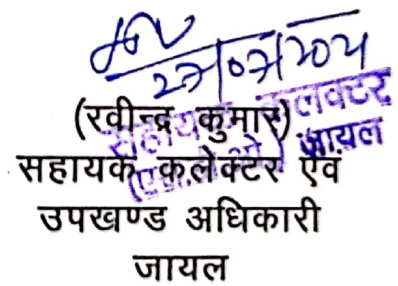 27/07/2024
(रवीन्द्र कुमार)
सहायक कलेक्टर एवं
उपखण्ड अधिकारी
जायल
सहायक कलक्टर
जायल